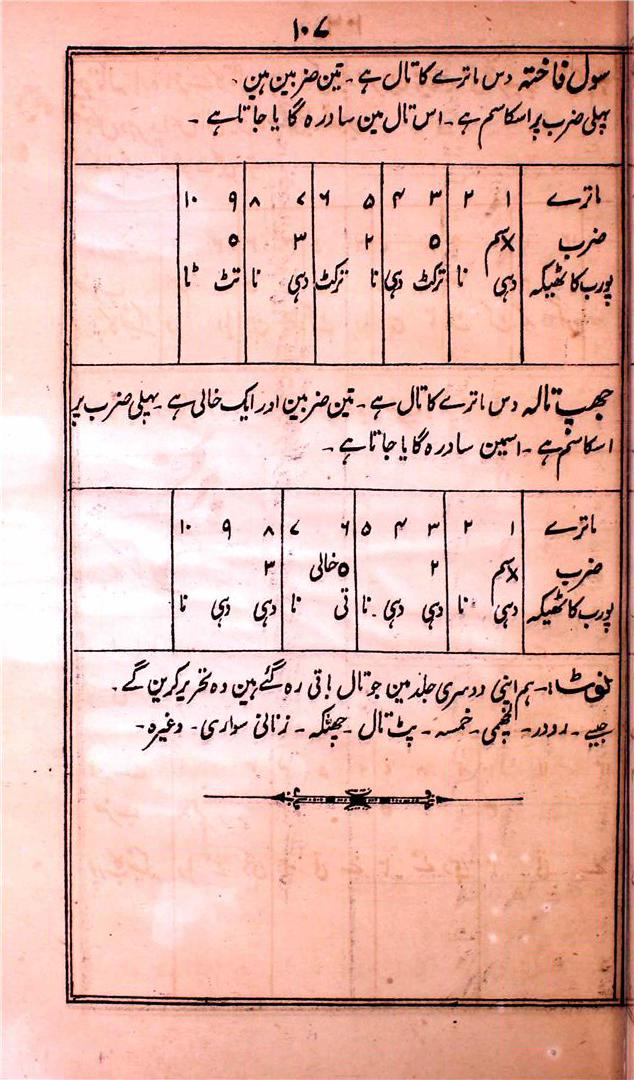 ۱۰۷
سول فاختہ دس ماترے کا تال ہے۔ تین ضربین ہین۔
پہلی ضرب پر اسکا سم ہے۔ اس تال مین سادرہ گایا جاتا ہے۔
ماترے ۱ ۲ ۳ ۴ ۵ ۶ ۷ ۸ ۹ ۱۰
ضرب × سم ٥ ۲ ۳ ٥
پورب کا ٹھیکہ دہی نا ترکٹ دہی نا ترکٹ دہی نا تٹ تا
جھپ تالہ دس ماترے کا تال ہے۔ تین ضربین اور ایک خالی ہے۔ پہلی ضرب پر
اسکا سم ہے۔ اسمین سادرہ گایا جاتا ہے۔
ماترے ۱ ۲ ۳ ۴ ۵ ۶ ۷ ۸ ۹ ۱۰
ضرب × سم ۲ ٥ خالی ۳
پورب کا ٹھیکہ دہی نا دہی دہی نا تی نا دہی دہی نا
نوٹ:۔ ہم اپنی دوسری جلد مین جو تال باقی رہ گئے ہین وہ تحریر کرین گے۔
جیسے۔ رودر۔ لچھمی۔ خمسہ۔ پٹ تال۔ جھٹکہ۔ زنانی سواری۔ وغیرہ۔